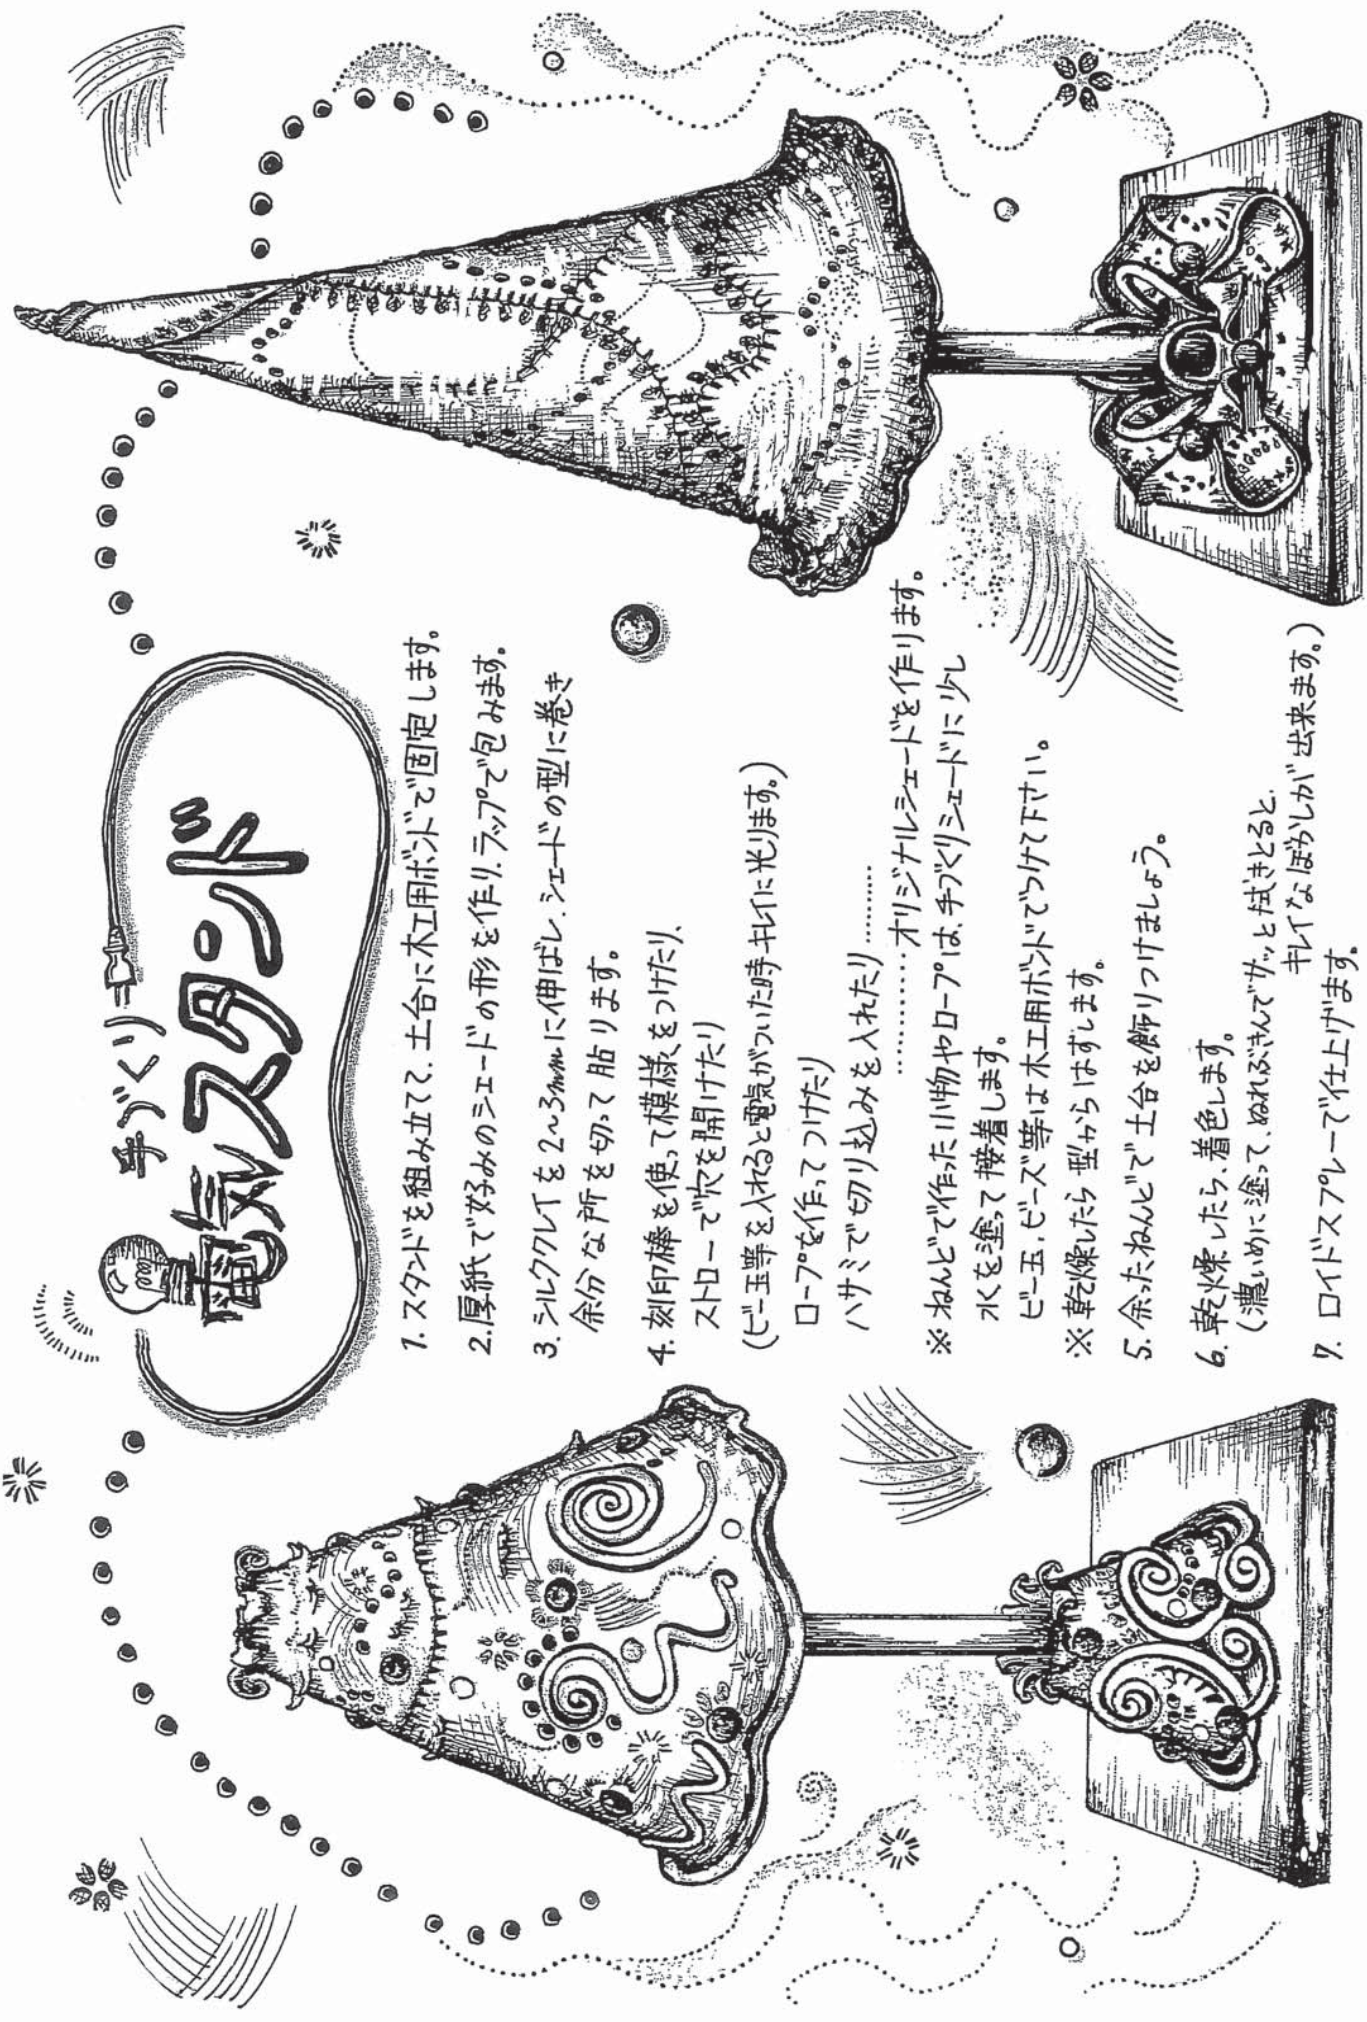 手づくり
電気スタンド
1. スタンドを組み立て、土台に木工用ボンドで固定します。
2. 厚紙で好みのシェードの形を作り、ラップで包みます。
3. シルククレイを2〜3mmに伸ばし、シェードの型に巻き
余分な所を切って貼ります。
4. 刻印棒を使って模様をつけたり、
ストローで穴を開けたり
(ビー玉等を入れると電気がついた時キレイに光ります。)
ロープを作ってつけたり
ハサミで切り込みを入れたり………
………オリジナルシェードを作ります。
※ねんどで作った小物やロープは、手づくりシェードに少し
水を塗って接着します。
ビー玉、ビーズ等は木工用ボンドでつけて下さい。
※乾燥したら型からはずします。
5. 余ったねんどで土台を飾りつけましょう。
6. 乾燥したら、着色します。
(濃いめに塗って、ぬれぶきんでサッと拭きとると、
キレイなぼかしが出来ます。)
7. ロイドスプレーで仕上げます。